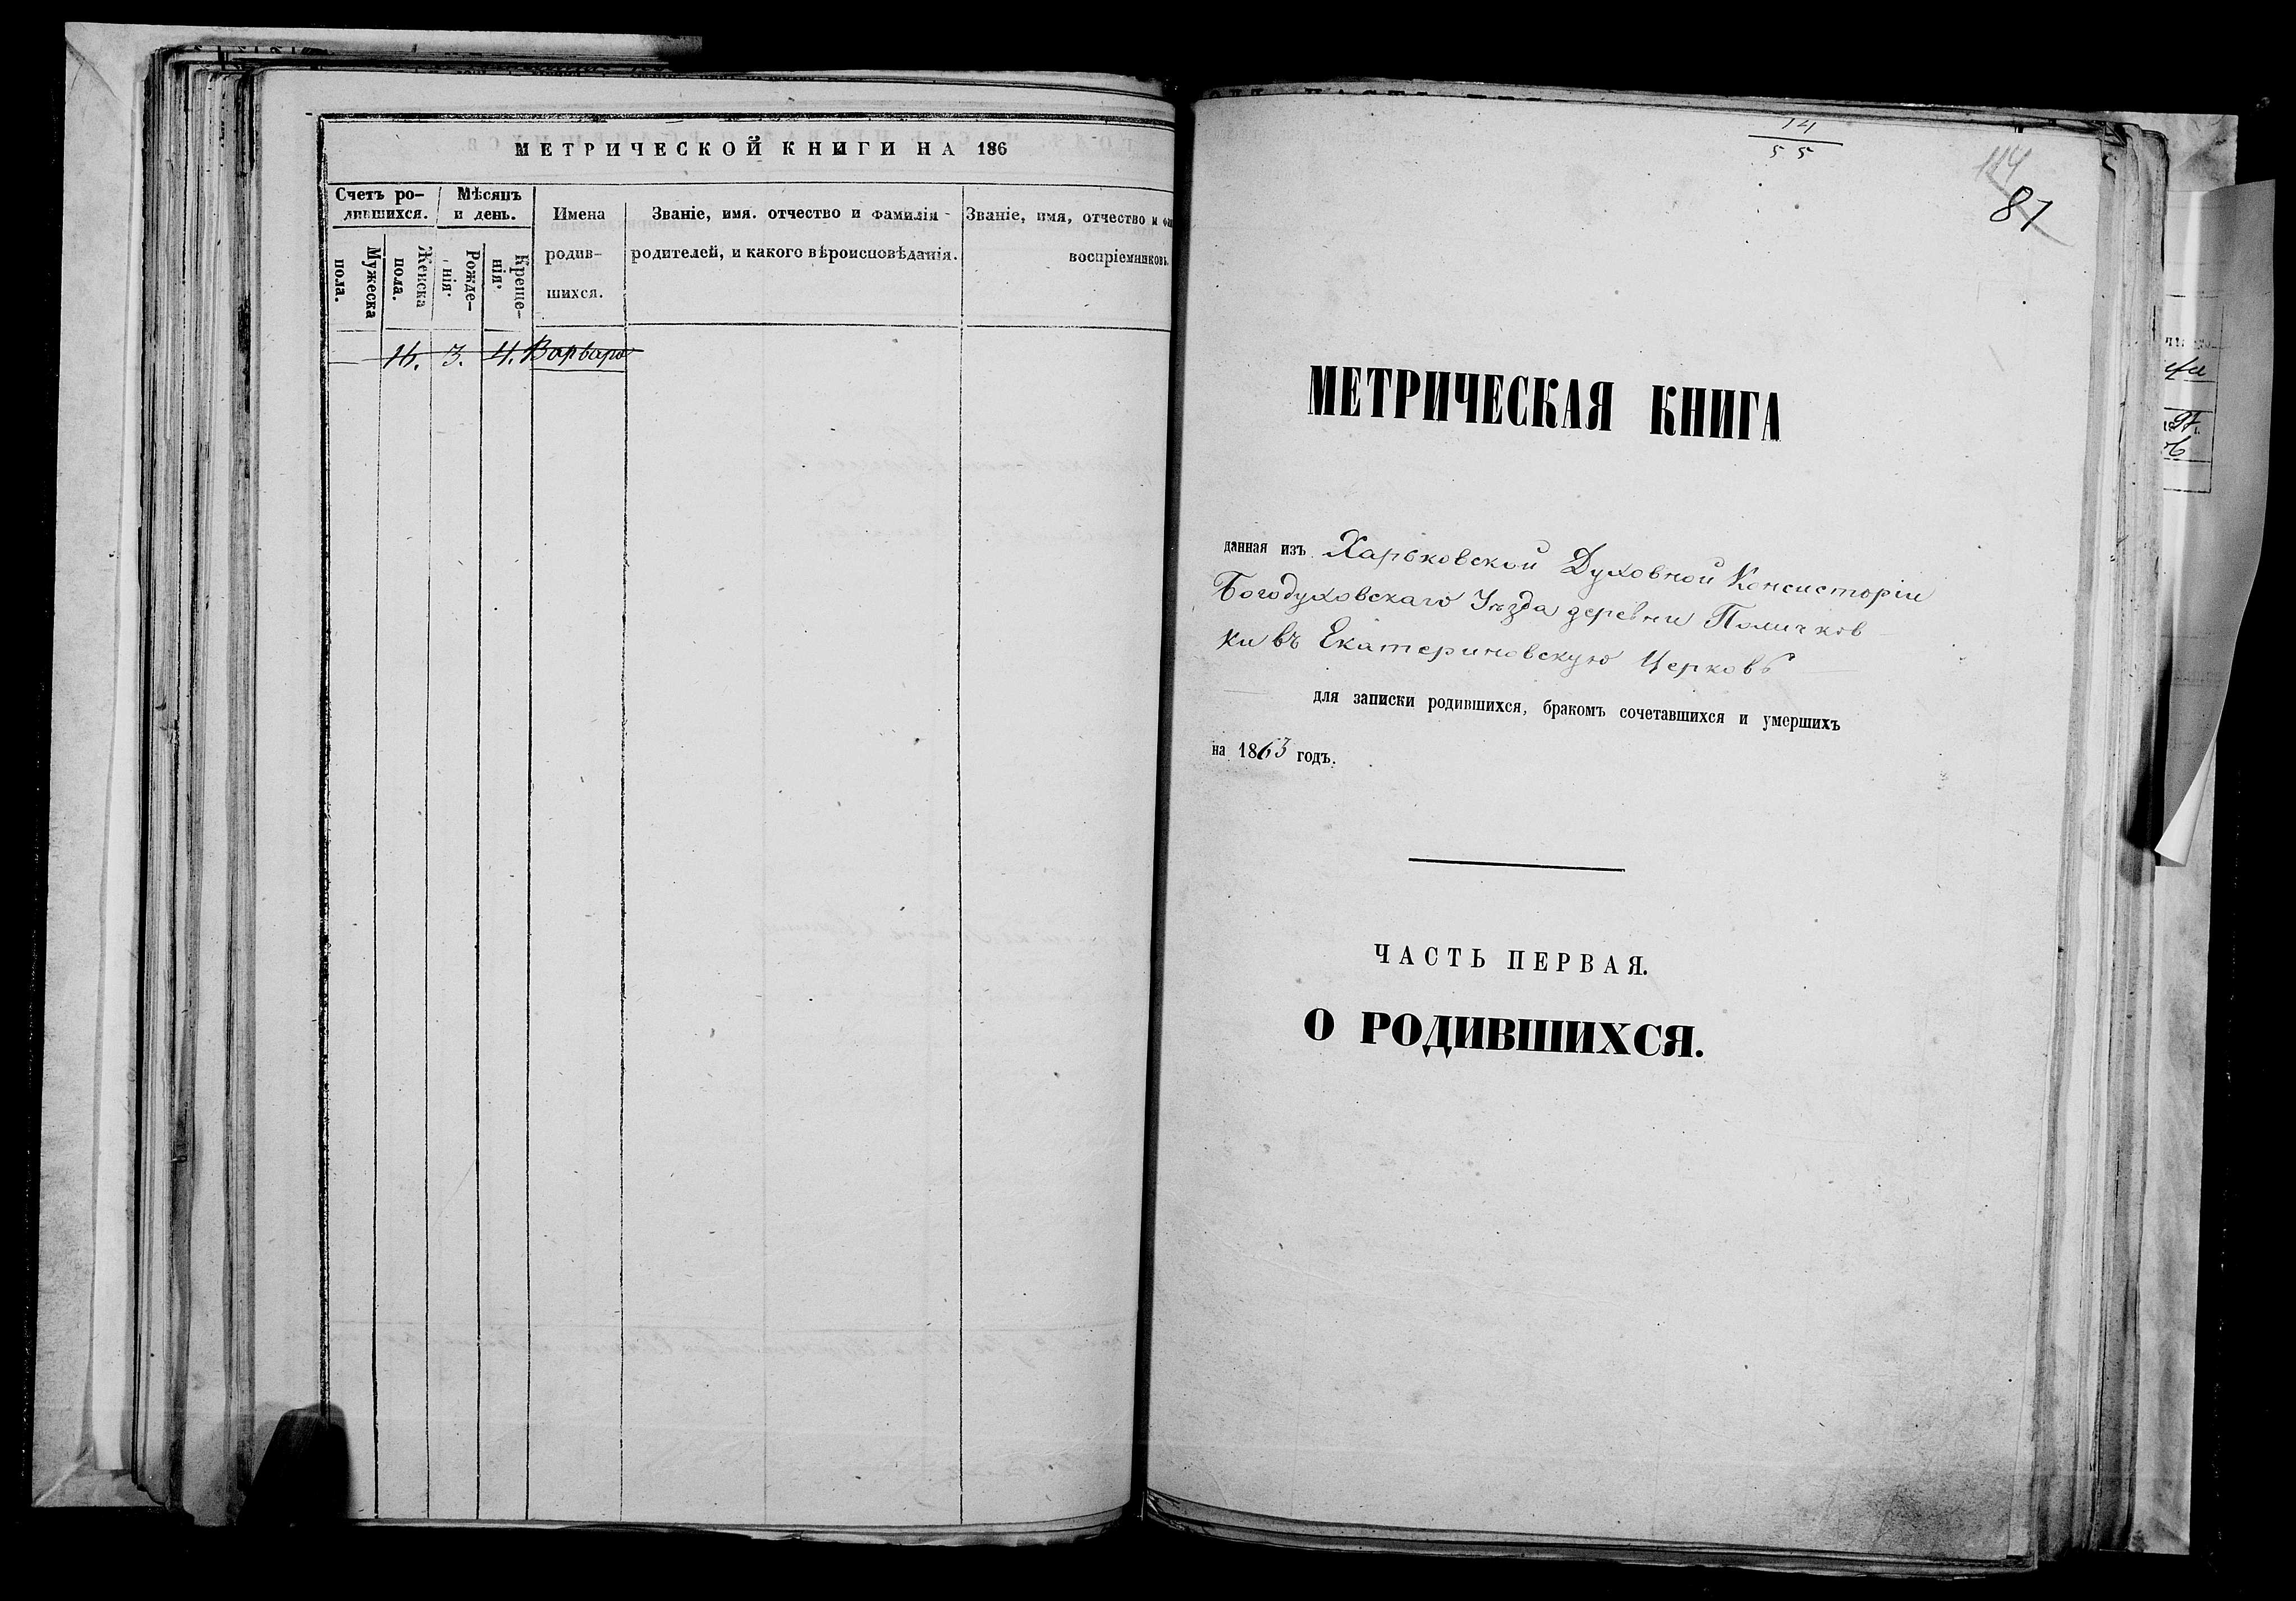 МЕТРИЧЕСКОЙ КНИГИ НА 186
Счетъ ро-
дившихся.
Мѣсяцъ
и день.
Мужеска
пола.
Женска
пола.
Рожде-
нія.
Креще-
нія.
Имена
родив-
шихся.
Званіе, имя, отчество и фамилія
родителей, и какого вѣроисповѣданія.
Званіе, имя, отчество и
воспріемниковъ.
16. 3. 4. Варвара
14
55
114
87
МЕТРИЧЕСКАЯ КНИГА
данная изъ Харьковской Духовной Консисторіи
Богодуховскаго Уѣзда деревни Поличков
ки въ Екатериновскую Церковь
для записки родившихся, бракомъ сочетавшихся и умершихъ
на 1863 годъ.
ЧАСТЬ ПЕРВАЯ.
О РОДИВШИХСЯ.